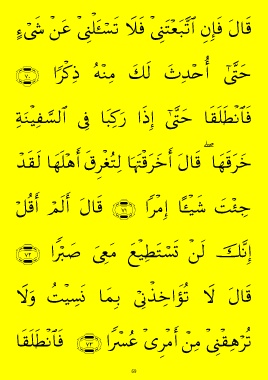 قَالَ فَإِنِ ٱتَّبَعْتَنِى فَلَا تَسْـَٔلْنِى عَن شَىْءٍ
حَتَّىٰٓ أُحْدِثَ لَكَ مِنْهُ ذِكْرًا ٧٠
فَٱنطَلَقَا حَتَّىٰٓ إِذَا رَكِبَا فِى ٱلسَّفِينَةِ
خَرَقَهَا ۖ قَالَ أَخَرَقْتَهَا لِتُغْرِقَ أَهْلَهَا لَقَدْ
جِئْتَ شَيْـًٔا إِمْرًا ٧١ قَالَ أَلَمْ أَقُلْ
إِنَّكَ لَن تَسْتَطِيعَ مَعِىَ صَبْرًا ٧٢
قَالَ لَا تُؤَاخِذْنِى بِمَا نَسِيتُ وَلَا
تُرْهِقْنِى مِنْ أَمْرِى عُسْرًا ٧٣ فَٱنطَلَقَا